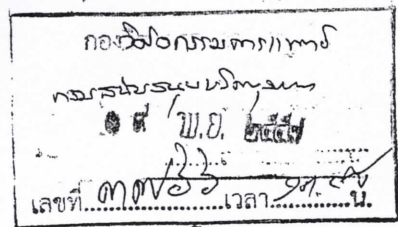 กองวิศวกรรมการแพทย์
กรมสนับสนุนบริการ
๑๙ พ.ย. ๒๕๕๗
เลขที่ ๓๗๖๖ เวลา น.